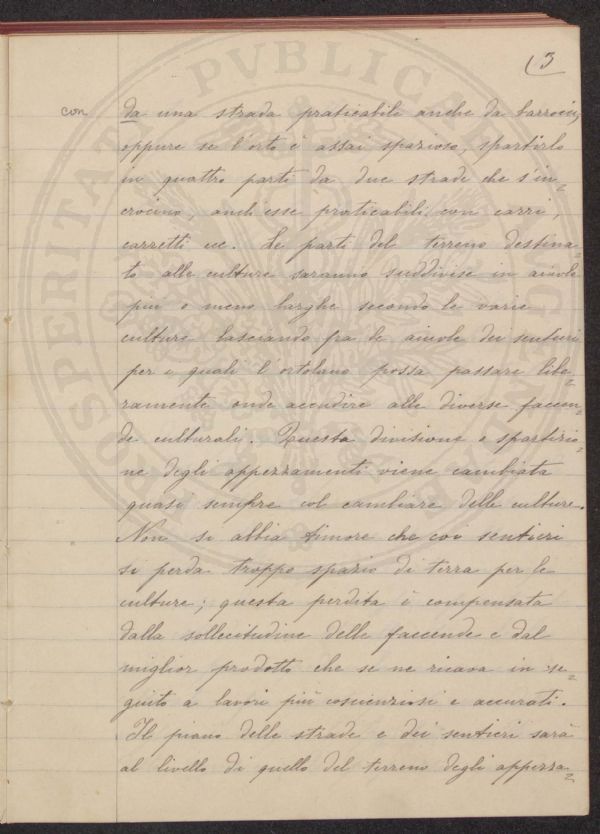 5
con
da una strada praticabile anche da barrocci,
oppure se l'orto è assai spazioso, spartirlo
in quattro parti da due strade che s'in=
crocino, anch'esse praticabili con carri,
carretti ecc. Le parti del terreno destina=
to alle culture saranno suddivise in aiuole
più o meno larghe secondo le varie
culture lasciando fra le aiuole dei sentieri
per i quali l'ortolano possa passare libe=
ramente onde accudire alle diverse faccen=
de culturali. Questa divisione o spartizio=
ne degli appezzamenti viene cambiata
quasi sempre col cambiare delle culture.
Non si abbia timore che coi sentieri
si perda troppo spazio di terra per le
culture; questa perdita è compensata
dalla sollecitudine delle faccende e dal
miglior prodotto che se ne ricava in se=
guito a lavori più coscienziosi e accurati.
Il piano delle strade e dei sentieri sarà
al livello di quello del terreno degli appezza=